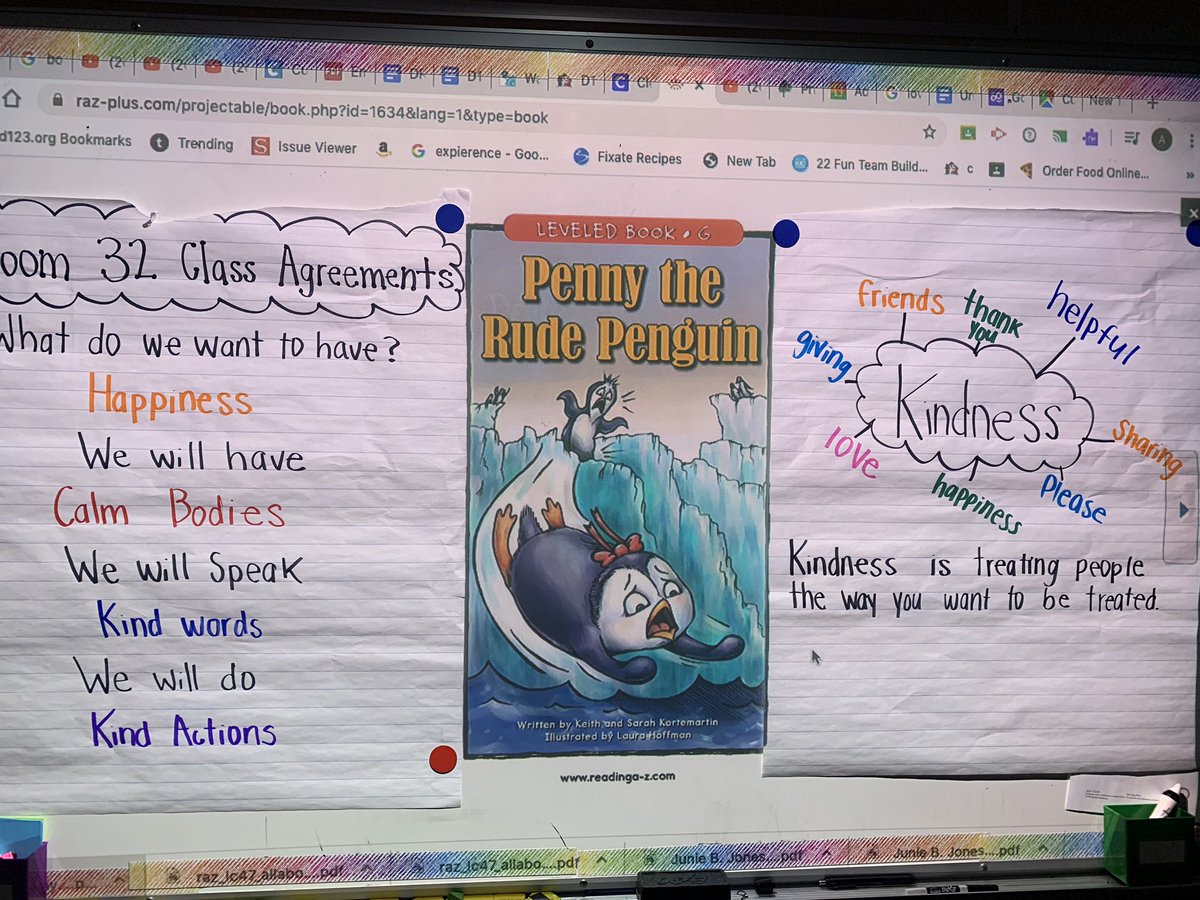 raz-plus.com/projectable/book.php?id=1634&lang=1&type=book
d123.org Bookmarks
Trending
Issue Viewer
expierence - Goo...
Fixate Recipes
New Tab
22 Fun Team Build...
c
Order Food Online...
oom 32 Class Agreements
What do we want to have?
Happiness
We will have
Calm Bodies
We will Speak
Kind words
We will do
Kind Actions
LEVELED BOOK • G
Penny the
Rude Penguin
Written by Keith and Sarah Kortemartin
Illustrated by Laura Hoffman
www.readinga-z.com
friends
thank
you
helpful
giving
Kindness
love
sharing
happiness
Please
Kindness is treating people
the way you want to be treated.
raz_lc47_allabo....pdf
raz_lc47_allabo....pdf
Junie B. Jones....pdf
Junie B. Jones....pdf